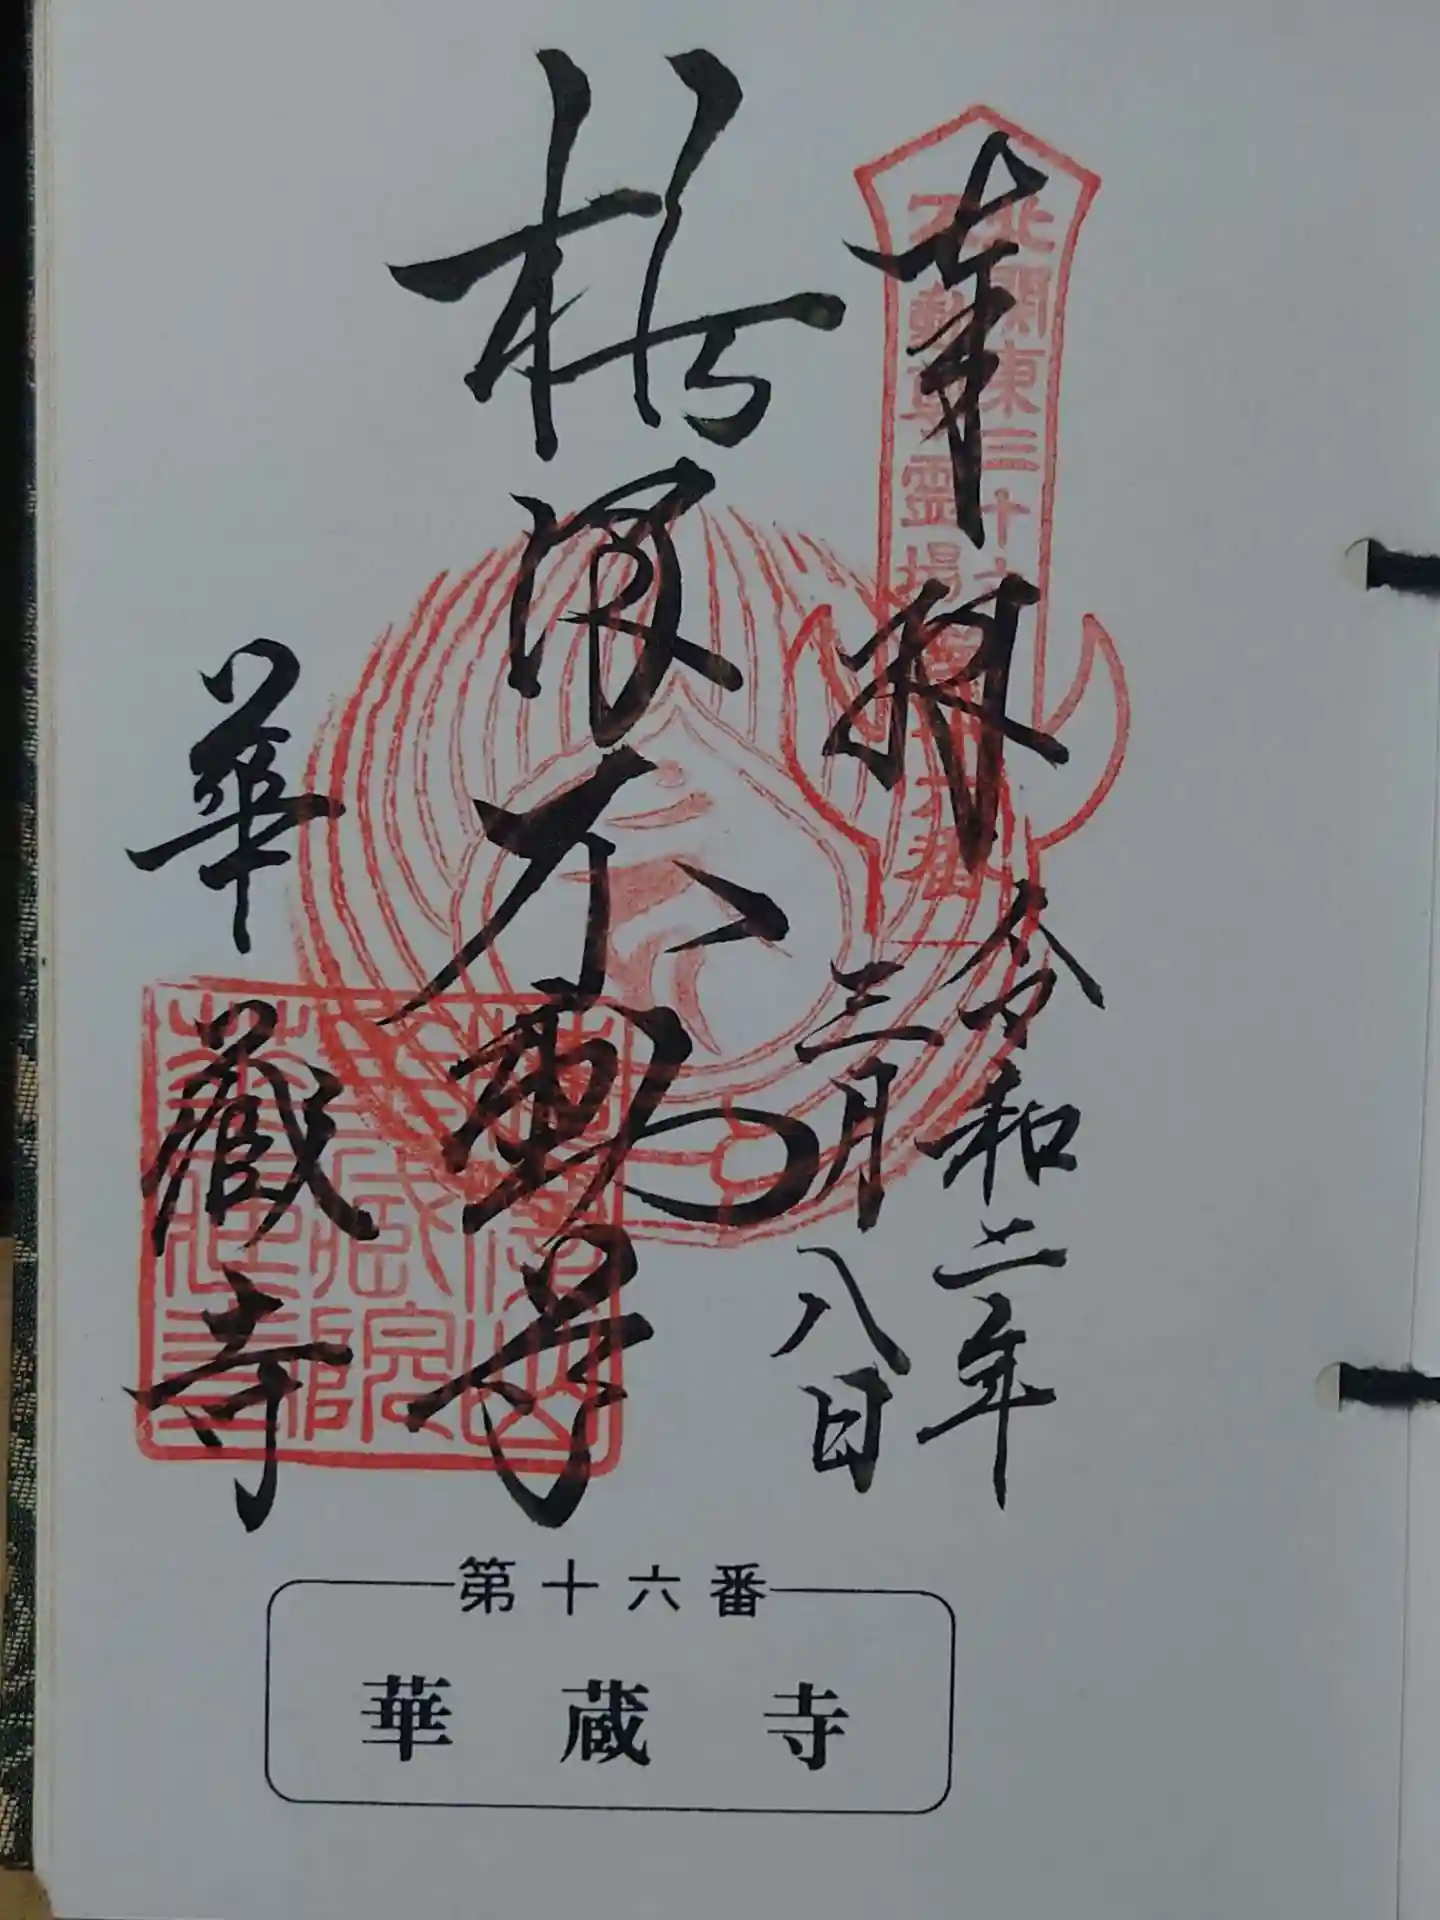 奉拝
令和二年
三月八日
梅澤不動尊
華蔵寺
北関東三十六
不動尊霊場
第十六番
第十六番
華蔵寺